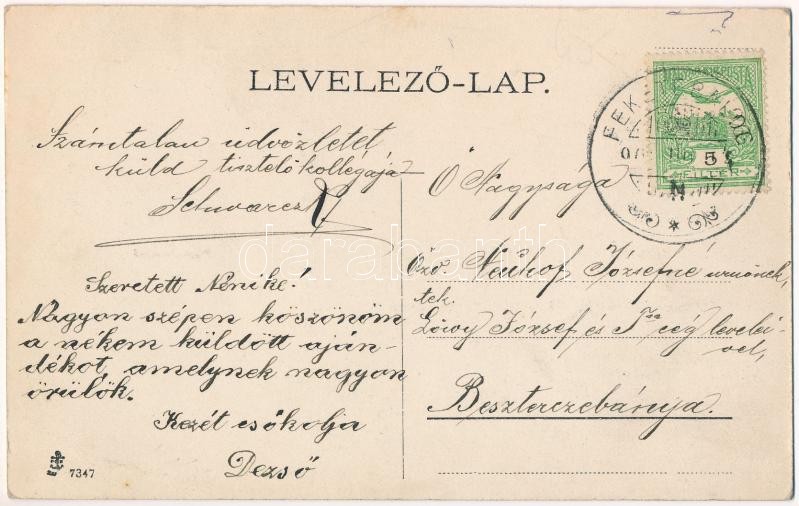 LEVELEZŐ-LAP.
Számtalan üdvözletét
küld tisztelő kollegája
Schwarcz
Szeretett Nénike!
Nagyon szépen köszönöm
a nékem küldött aján-
dékot, amelynek nagyon
örülök.
Kezét csókolja
Dezső
7347
Ő Nagysága
Özv. Neuhof Józsefné urnőnek,
tek.
Löwy József és Tsa cég levelei-
vel,
Beszterczebánya.
5
FILLER
darabanth